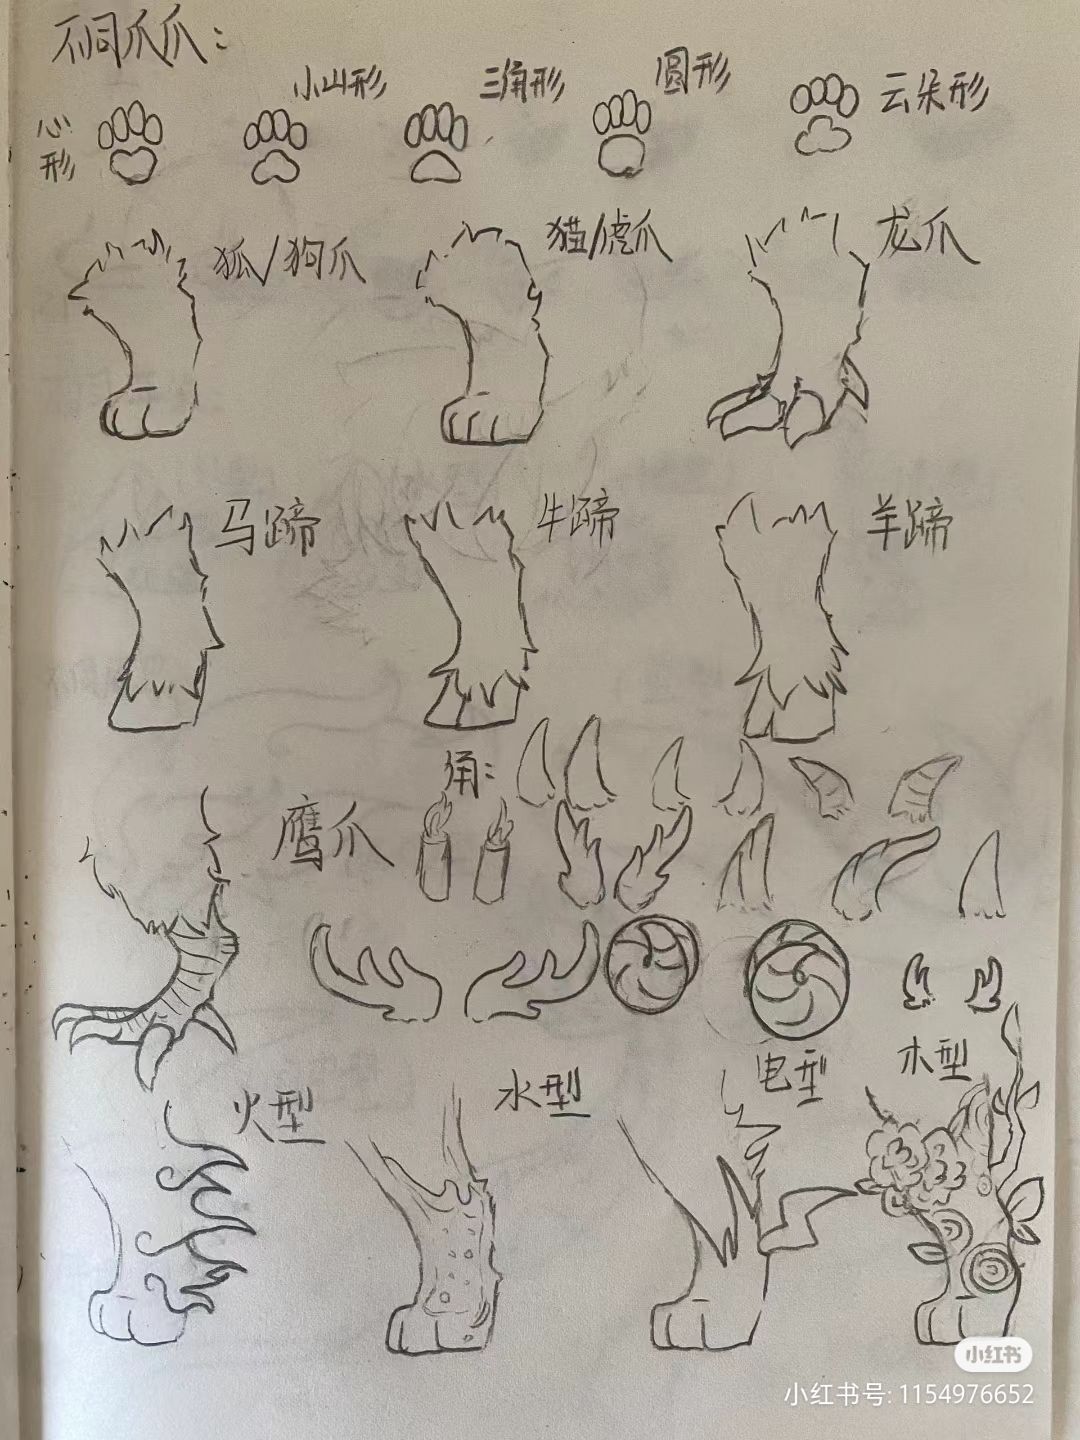 不同爪爪：
心形
小山形
三角形
圆形
云朵形
狐/狗爪
猫/虎爪
龙爪
马蹄
牛蹄
羊蹄
角：
鹰爪
火型
水型
电型
木型
小红书
小红书号: 1154976652